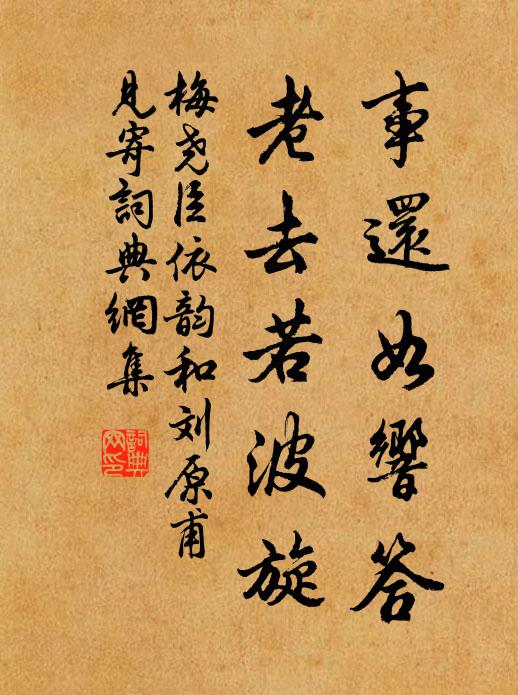 事還如響答
老去若波旋
梅尧臣依韵和刘原甫
見寄詞典網集
詞典网印